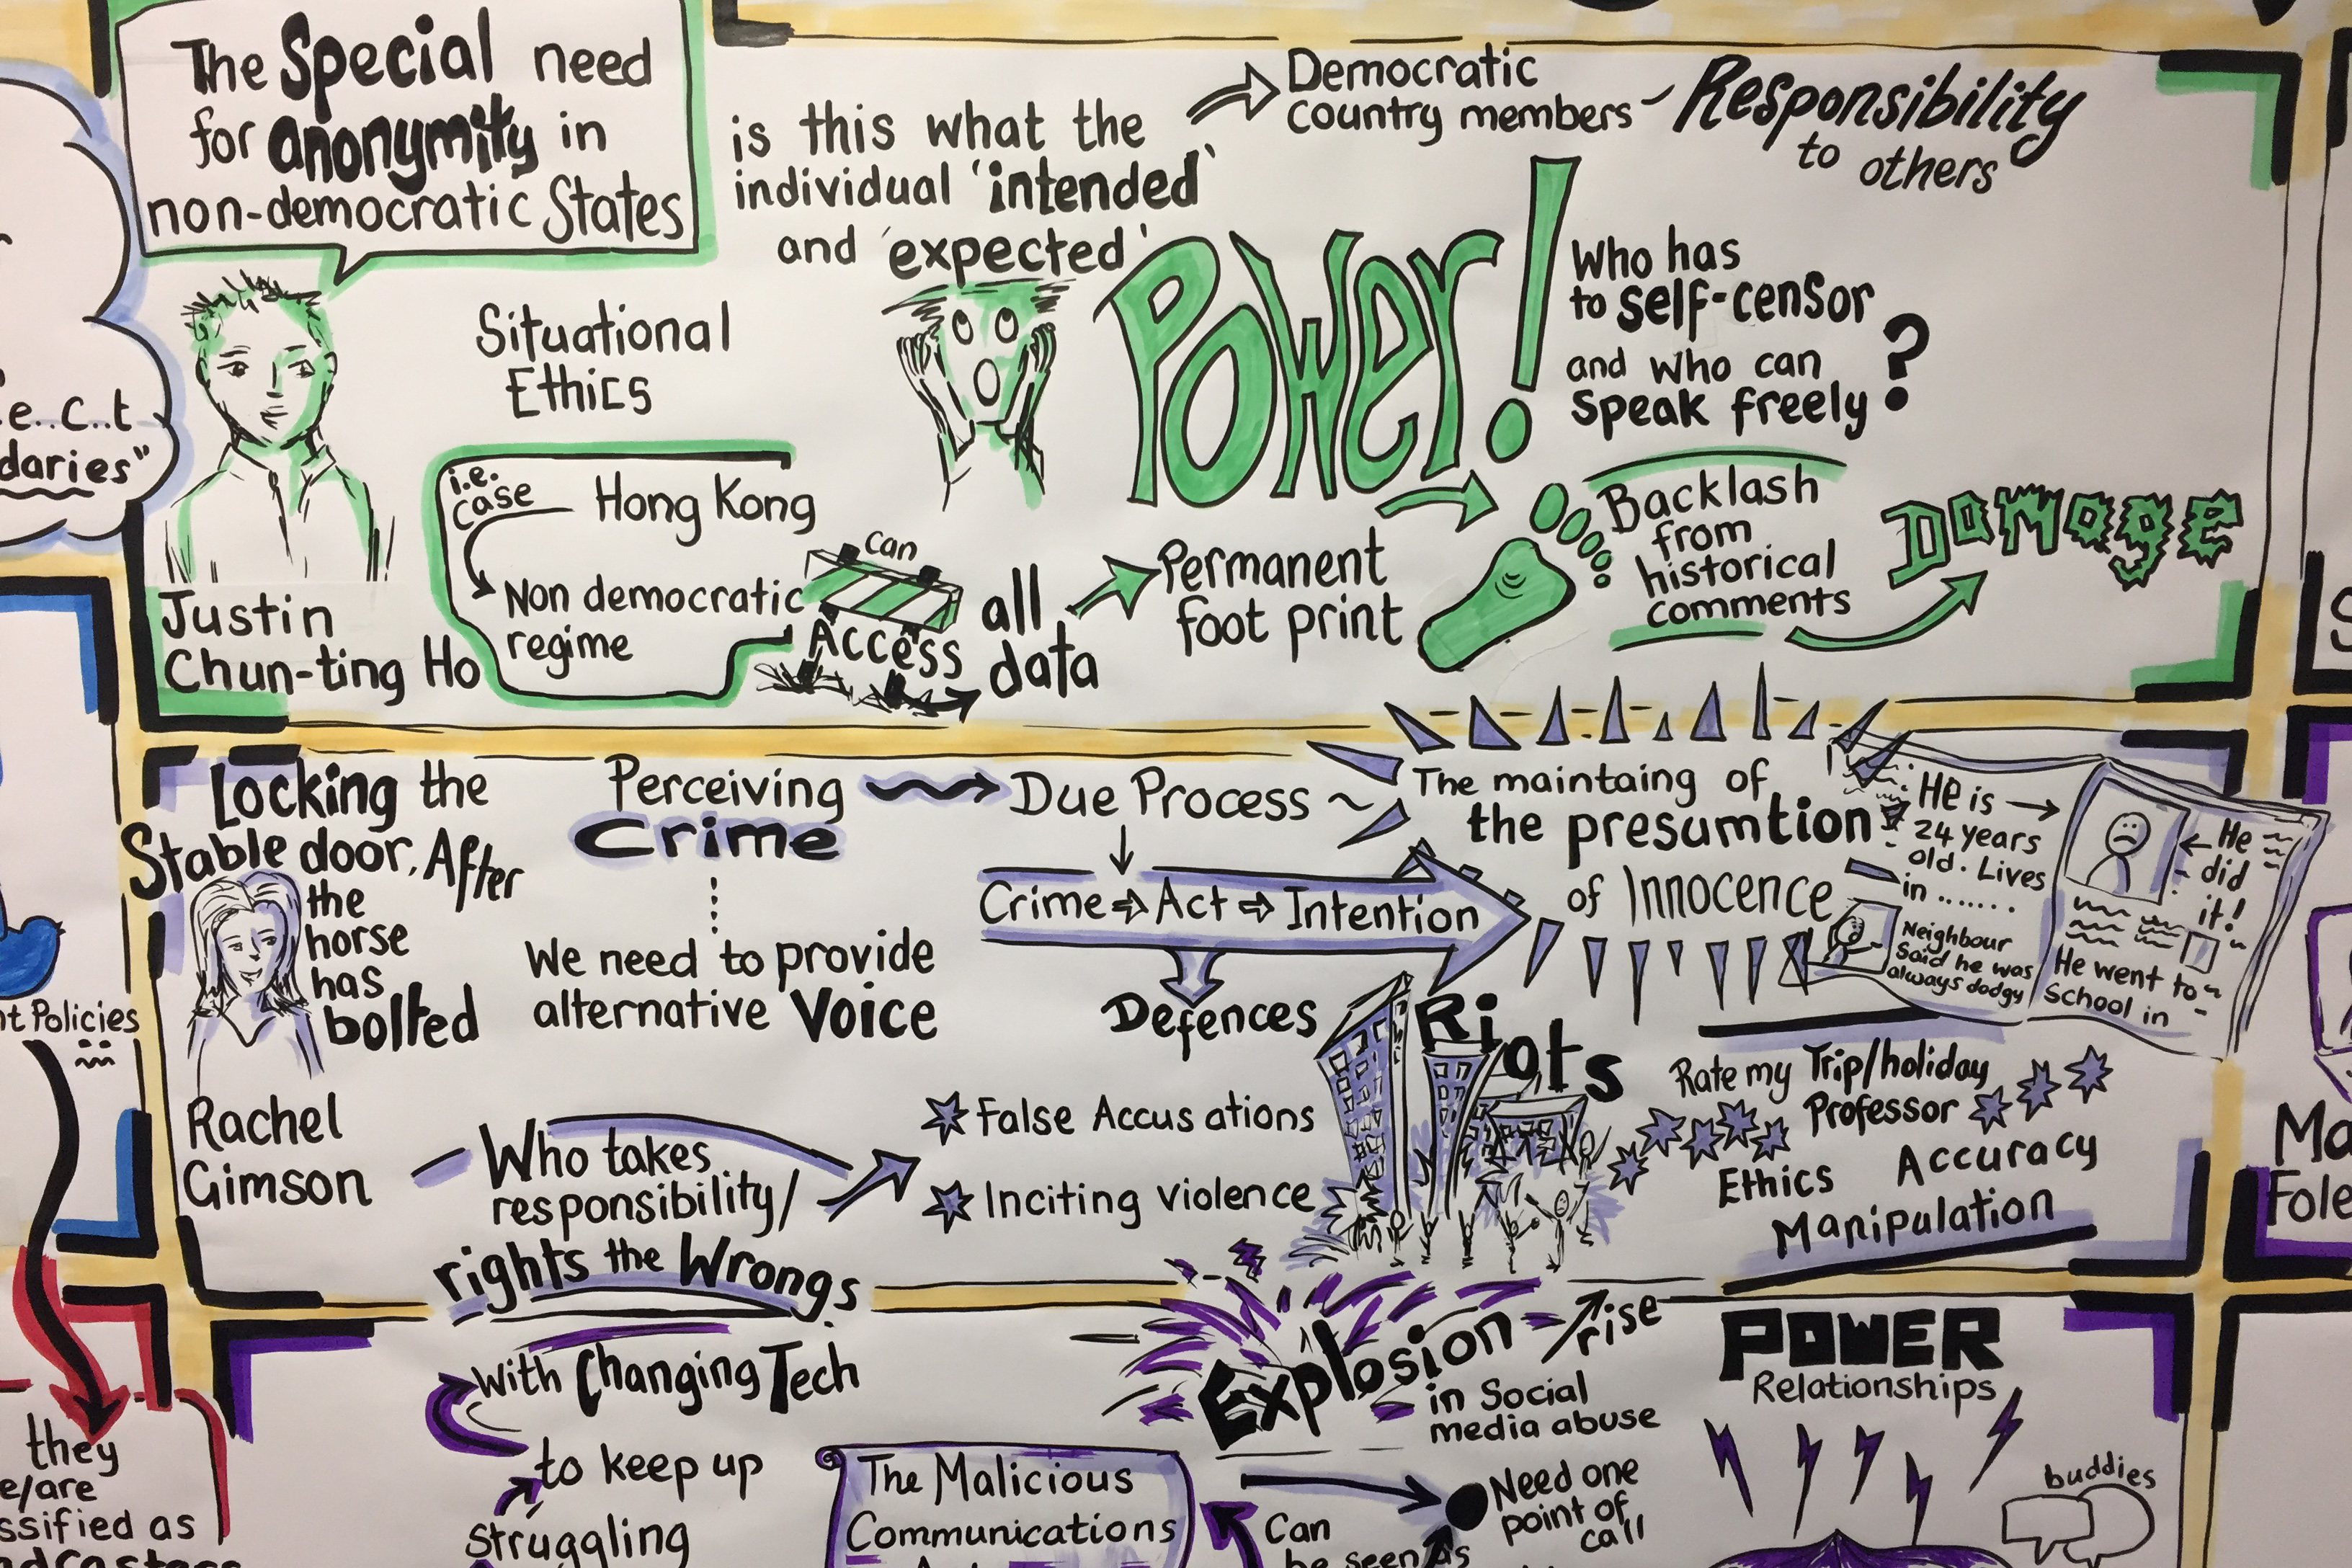 The Special need
for anonymity in
non-democratic States
is this what the
individual 'intended'
and 'expected'
Democratic
country members
Responsibility
to others
Situational
Ethics
Power!
Who has
to self-censor
and who can
speak freely ?
i.e.
case
Hong Kong
Non democratic
regime
can
Access
all
data
Permanent
foot print
Backlash
from
historical
comments
Damage
Justin
Chun-ting Ho
e..c..t
daries"
Locking the
Stable door, After
the
horse
has
bolted
Rachel
Gimson
Perceiving
Crime
We need to provide
alternative Voice
Due Process
Crime ⇒ Act ⇒ Intention
Defences
The maintaing of
the presumtion
of Innocence
He is
24 years
old. Lives
in .......
Neighbour
Said he was
always dodgy
He
did
it!
He went to
School in
Who takes
responsibility/
rights the Wrongs
False Accusations
Inciting violence
Riots
Rate my Trip/holiday
Professor
Ethics Accuracy
Manipulation
Policies
they
e/are
ssified as
With Changing Tech
to keep up
Struggling
Explosion
rise
in Social
media abuse
The Malicious
Communications
Can
be seen as
Need one
point of
call
Power
Relationships
buddies
Ma
Fole